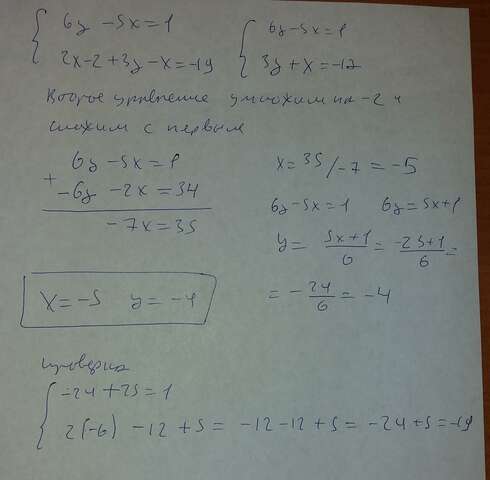 6y - 5x = 1
2x - 2 + 3y - x = -19
6y - 5x = 1
3y + x = -17
Второе уравнение умножим на -2 и
сложим с первым
6y - 5x = 1
+ -6y - 2x = 34
-7x = 35
x = 35/-7 = -5
6y - 5x = 1 6y = 5x + 1
y = \frac{5x+1}{6} = \frac{-25+1}{6} =
= -\frac{24}{6} = -4
x = -5 y = -4
проверка
-24 + 25 = 1
2(-6) - 12 + 5 = -12 - 12 + 5 = -24 + 5 = -19